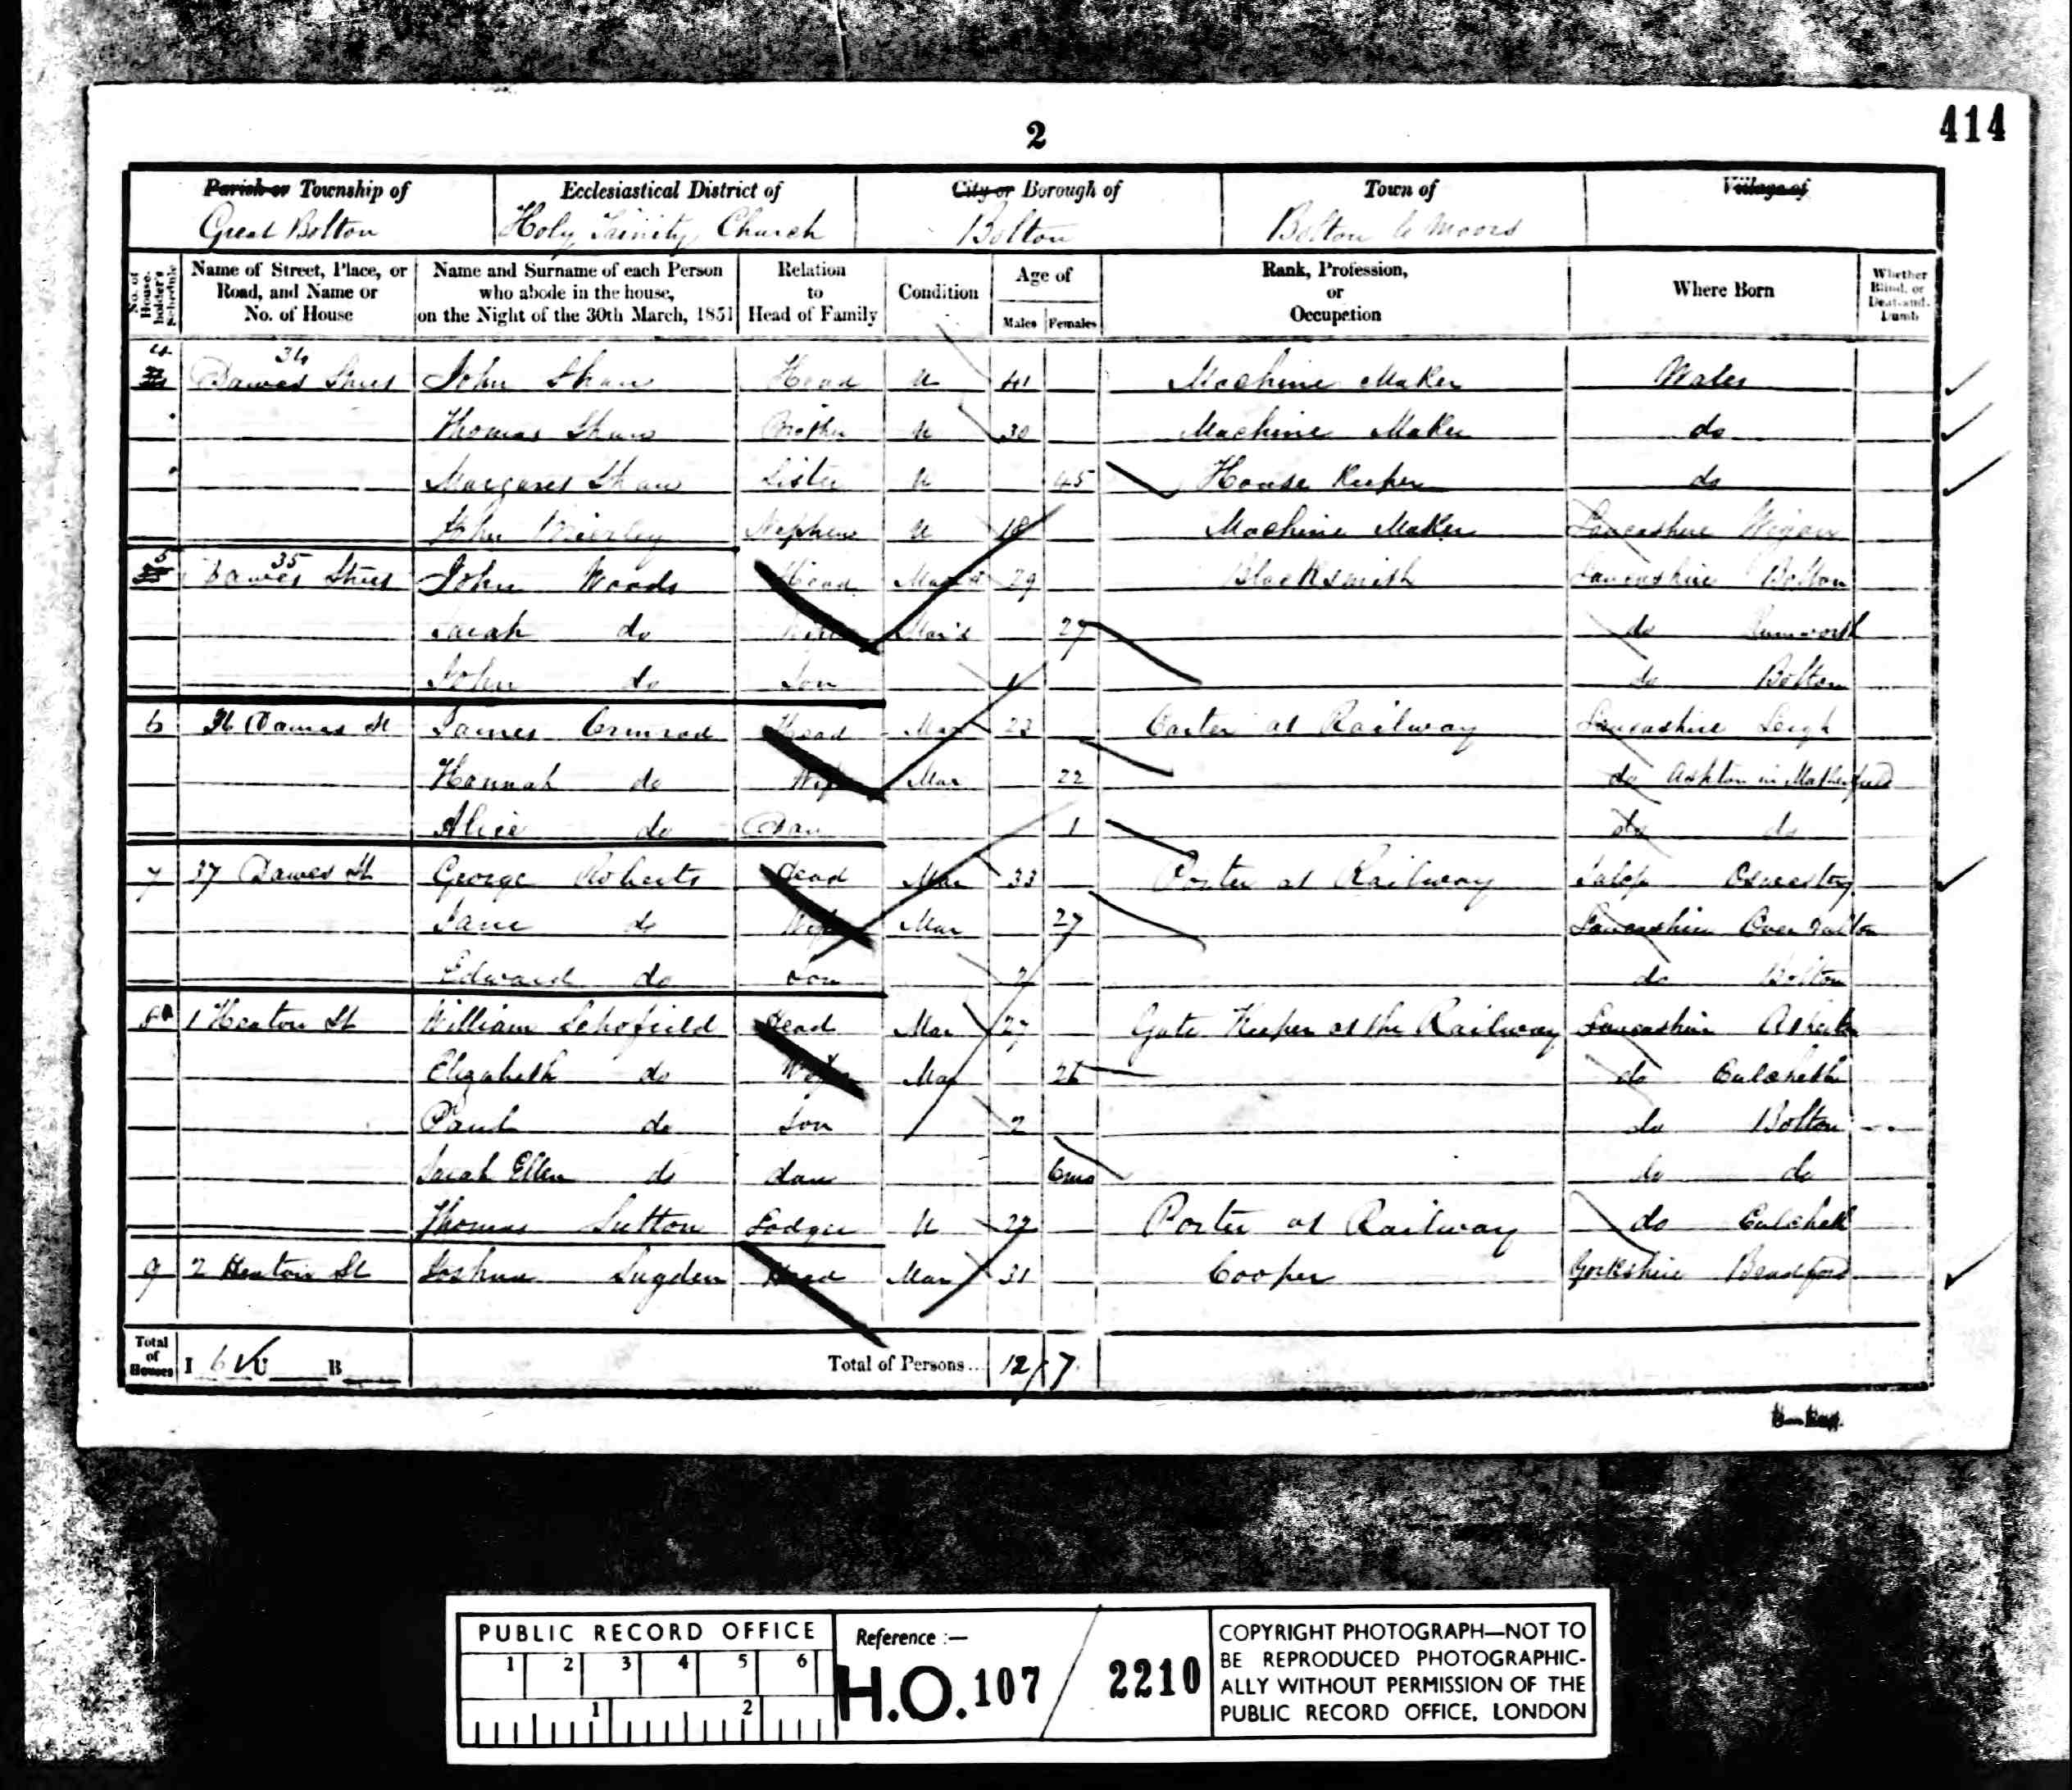 414
2
Parish or Township of Ecclesiastical District of City or Borough of Town of Village of
Great Bolton Holy Trinity Church Bolton Bolton le Moors
No. of House-holder's Schedule Name of Street, Place, or Road, and Name or No. of House Name and Surname of each Person who abode in the house, on the Night of the 30th March, 1851 Relation to Head of Family Condition Age of Males Females Rank, Profession, or Occupation Where Born Whether Blind, or Deaf-and-Dumb
4 34 Dawes Street John Shaw Head U 41 Machine Maker Wales
Thomas Shaw Brother U 30 Machine Maker do
Margaret Shaw Sister U 45 House Keeper do
John Nephew U 18 Machine Maker Lancashire Wigan
5 35 Dawes Street John Woods Head Mar'd 29 Blacksmith Lancashire Bolton
Sarah do Wife Mar'd 27 do Rumworth
John do Son 1 do Bolton
6 36 Dawes St James Ormrod Head Mar 23 Carter at Railway Lancashire Leigh
Hannah do Wife Mar 22 do Ashton in
Alice do Dau 1 do do
7 37 Dawes St George Roberts Head Mar 33 Porter at Railway Salop Oswestry
Jane do Wife Mar 27 Lancashire Over Hulton
Edward do Son do Bolton
8 1 Heaton St William Schofield Head Mar 27 Gate Keeper at the Railway Lancashire Atherton
Elizabeth do Wife Mar 26 do Culcheth
Paul do Son 2 do Bolton
Sarah Ellen do dau 6mo do do
Thomas Sutton Lodger U 22 Porter at Railway do Culcheth
9 2 Heaton St Joshua Sugden Head Mar 31 Cooper Yorkshire Bradford
Total of Houses I 6 U B Total of Persons... 12 7
PUBLIC RECORD OFFICE
1 2 3 4 5 6
1 2
Reference :—
H.O. 107 / 2210
COPYRIGHT PHOTOGRAPH—NOT TO
BE REPRODUCED PHOTOGRAPHIC-
ALLY WITHOUT PERMISSION OF THE
PUBLIC RECORD OFFICE, LONDON